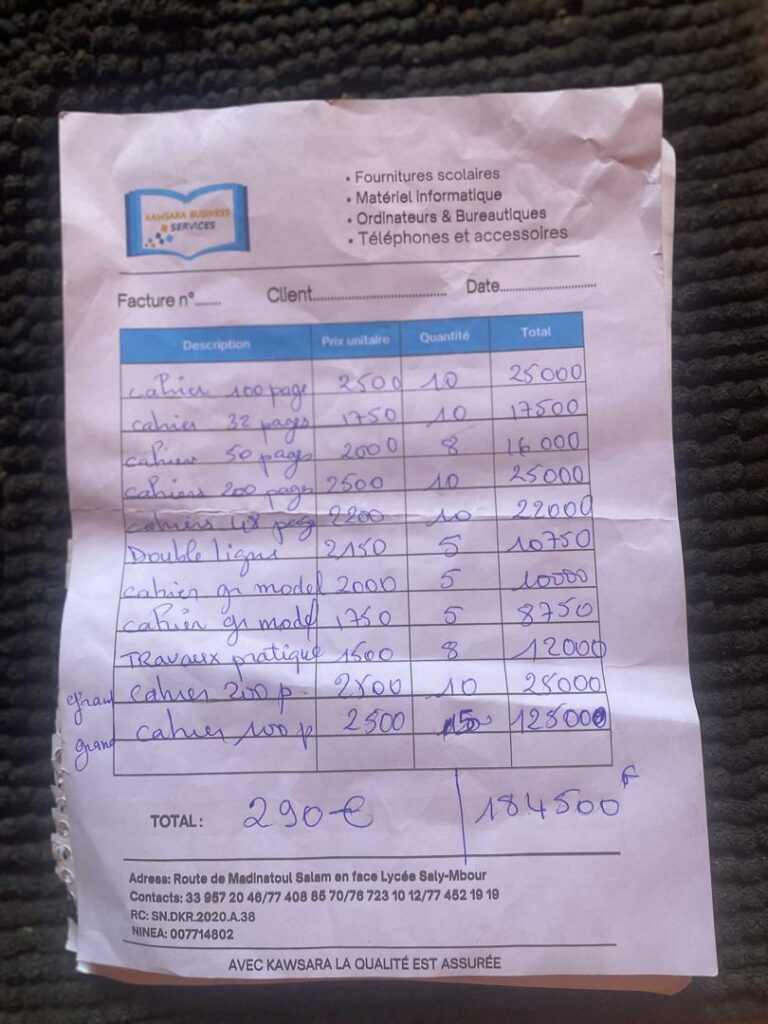 KAWSARA BUSINESS
SERVICES
• Fournitures scolaires
• Matériel informatique
• Ordinateurs & Bureautiques
• Téléphones et accessoires
Facture n°........ Client....................................... Date............................
Description Prix unitaire Quantité Total
cahier 100 page 2500 10 25000
cahier 32 pages 1750 10 17500
cahiers 50 pages 2000 8 16000
cahiers 200 pages 2500 10 25000
cahiers 48 page 2200 10 22000
Double ligne 2150 5 10750
cahier gr model 2000 5 10000
cahier gr model 1750 5 8750
TRavaux pratique 1500 8 12000
grand cahier 200 p. 2800 10 28000
grand cahier 100 p 2500 5 12500
TOTAL: 290€ 184500 F
Adress: Route de Madinatoul Salam en face Lycée Saly-Mbour
Contacts: 33 957 20 46/77 408 85 70/76 723 10 12/77 452 19 19
RC: SN.DKR.2020.A.38
NINEA: 007714802
AVEC KAWSARA LA QUALITÉ EST ASSURÉE